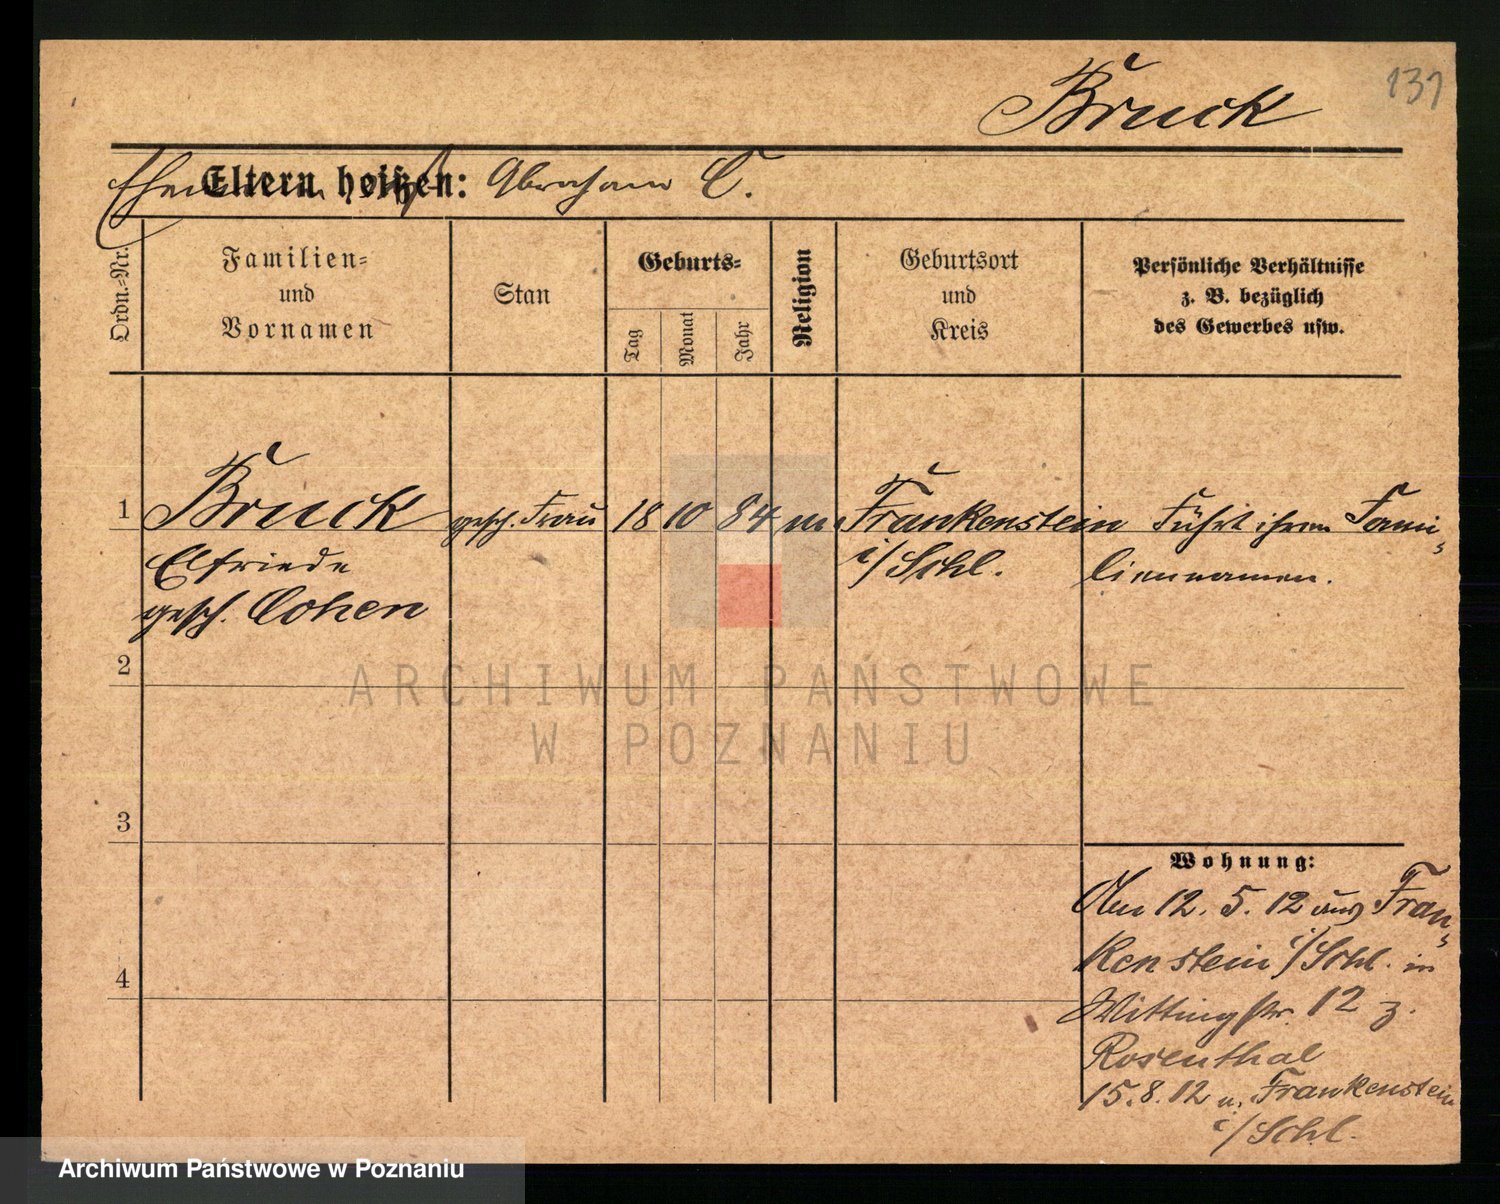 Bruck
131
Ehemann hieß Eltern heißen: Abraham C.
Ordn.-Nr.
Familien-
und
Vornamen
Stan
Geburts-
Tag
Monat
Jahr
Religion
Geburtsort
und
Kreis
Persönliche Verhältnisse
z. B. bezüglich
des Gewerbes usw.
1 Bruck gesch. Frau 18 10 84 m. Frankenstein Führt ihren Fami-
Elfriede i/Schl. liennamen.
gesch. Cohen
2
ARCHIWUM PAŃSTWOWE
W POZNANIU
3
Wohnung:
Am 12. 5. 12 aus Fran-
kenstein i/Schl. in
4
Wittingstr. 12 z.
Rosenthal
15.8.12 n. Frankenstein
i/Schl.
Archiwum Państwowe w Poznaniu